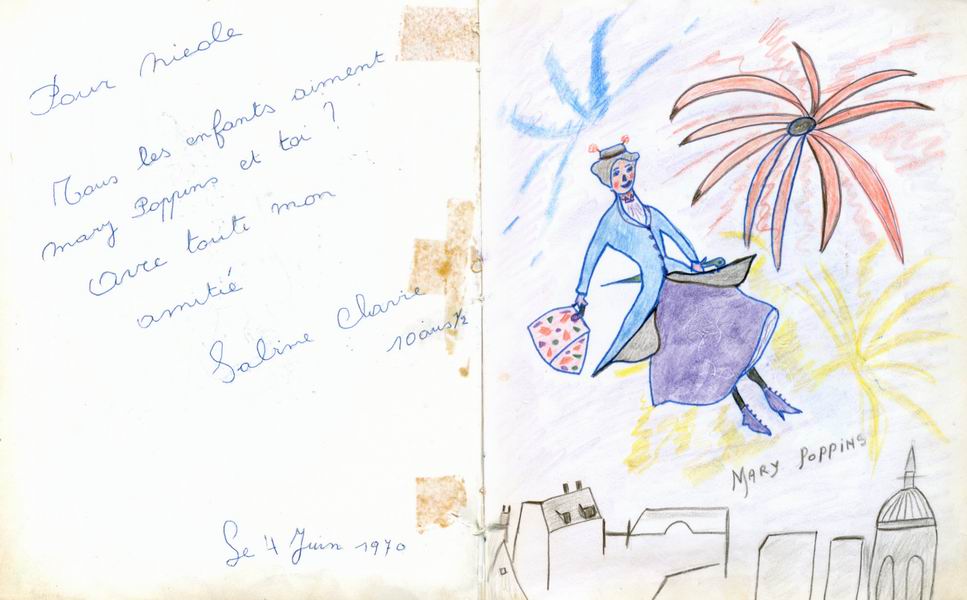 Pour nicole
Tous les enfants aiment
mary Poppins et toi ?
avec toute mon
amitié
Sabine Clavie
10 ans ½
Le 4 Juin 1970
MARY POPPINS